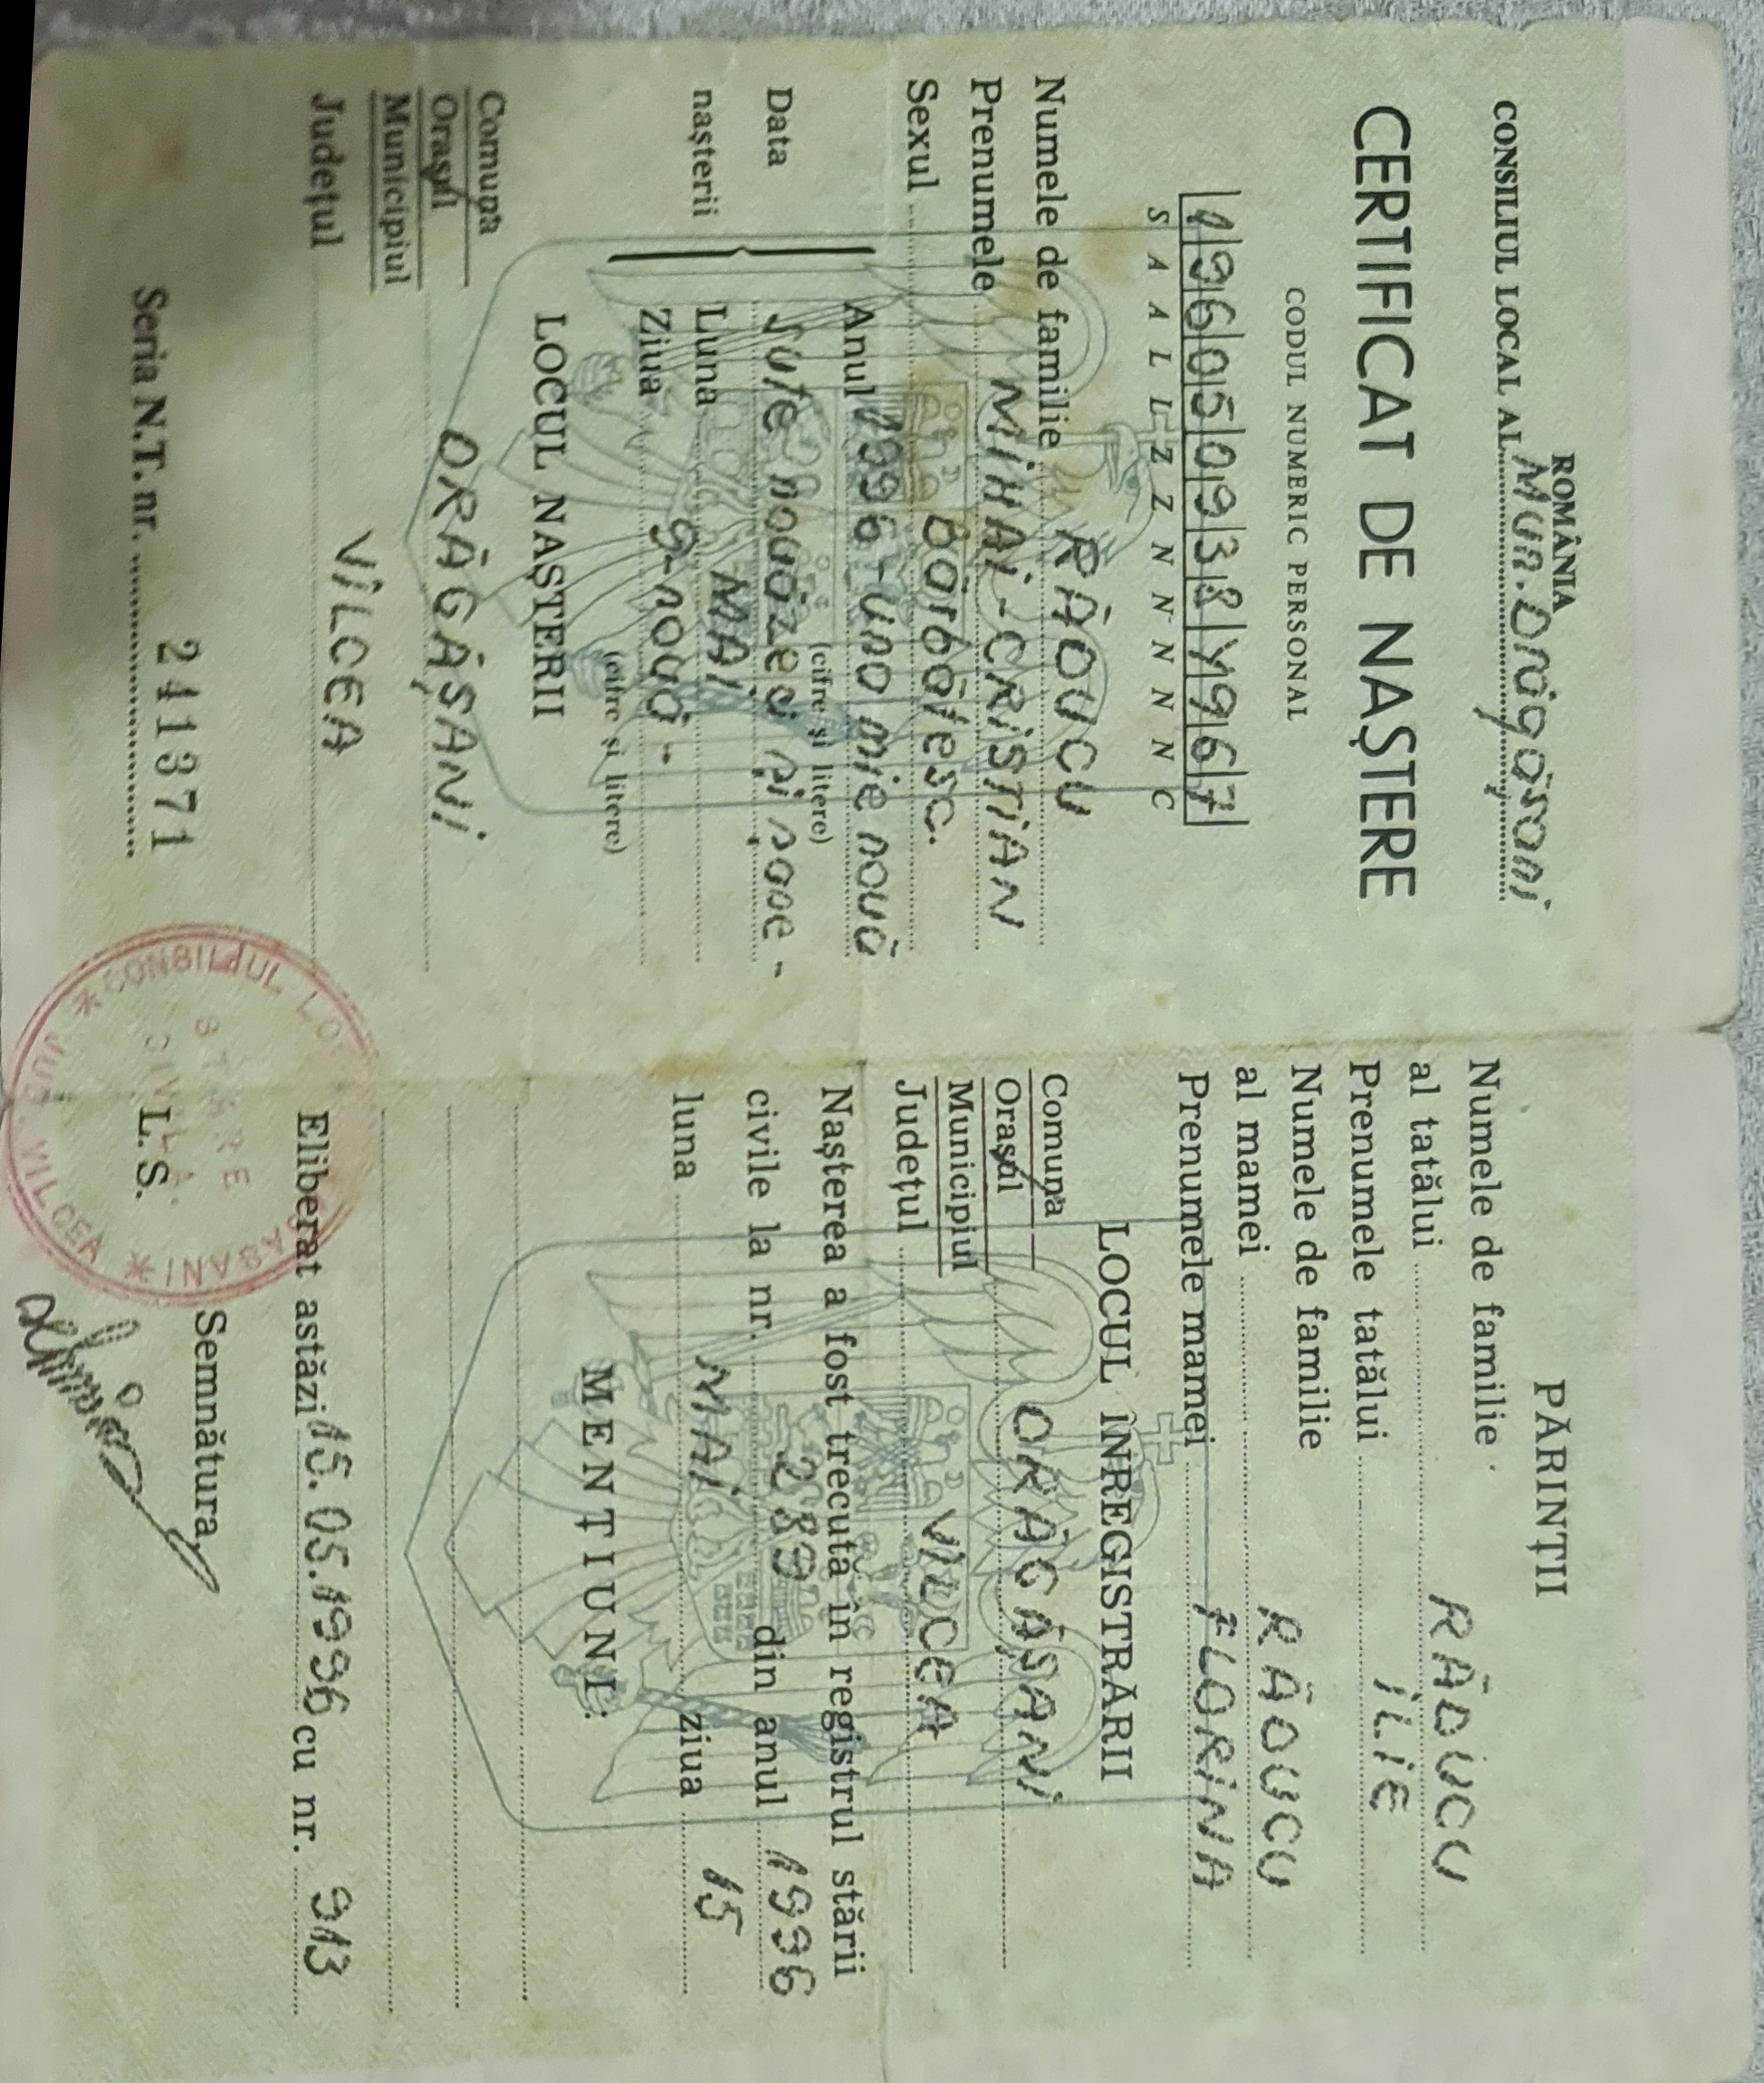 ROMÂNIA
CONSILIUL LOCAL AL Mun. Drăgăşani
CERTIFICAT DE NAŞTERE
CODUL NUMERIC PERSONAL
S A A L L Z Z N N N N N C
Numele de familie RĂDUCU
Prenumele MIHAI-CRISTIAN
Sexul Bărbătesc.
Data naşterii
Anul 1996-una mie nouă
(cifre şi litere)
sute nouăzeci şi şase-
Luna MAI
Ziua 9-nouă-
(cifre şi litere)
LOCUL NAŞTERII
Comuna
Oraşul
Municipiul
DRĂGĂŞANI
Judeţul VÎLCEA
Seria N.T. nr. 241371
PĂRINŢII
Numele de familie
al tatălui RĂDUCU
Prenumele tatălui ILIE
Numele de familie
al mamei RĂDUCU
Prenumele mamei FLORINA
LOCUL ÎNREGISTRĂRII
Comuna
Oraşul
Municipiul
DRĂGĂŞANI
Judeţul VÎLCEA
Naşterea a fost trecută în registrul stării
civile la nr. 289 din anul 1996
luna MAI ziua 15
MENŢIUNI:
Eliberat astăzi 15.05.1996 cu nr. 913
L.S.
Semnătura,
STARE
CIVILĂ
VILCEA